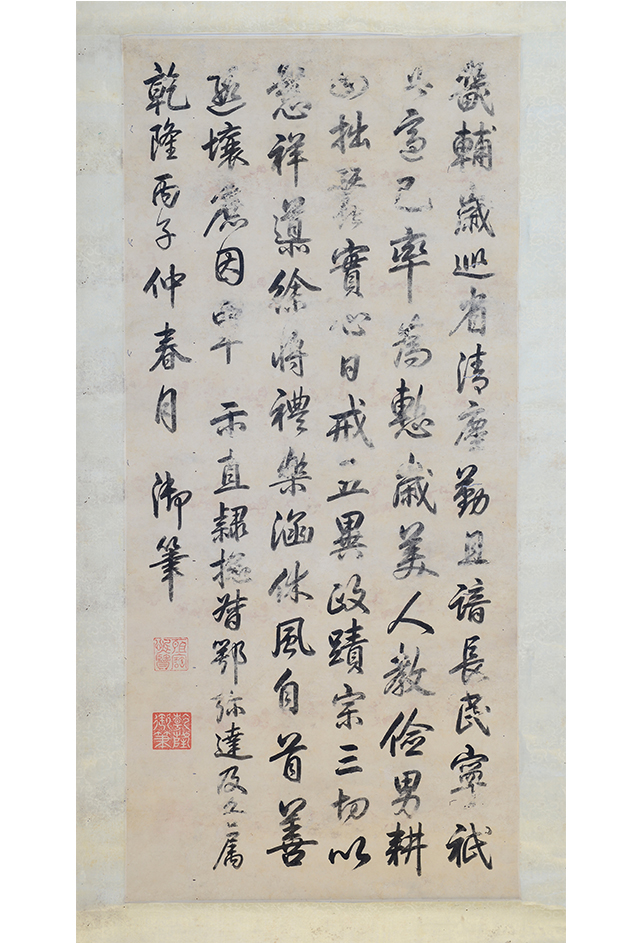 畿輔歲巡省清塵勤且諳長民寧祇
適己率為慙歲美人教儉男耕
拙蠶實心日戒五異政蹟宗三切以
慈祥導徐將禮樂涵休風自首善
遐壤應因覃 示直隸總督鄂弥達及各属
乾隆丙子仲春月 御筆
乾隆御筆